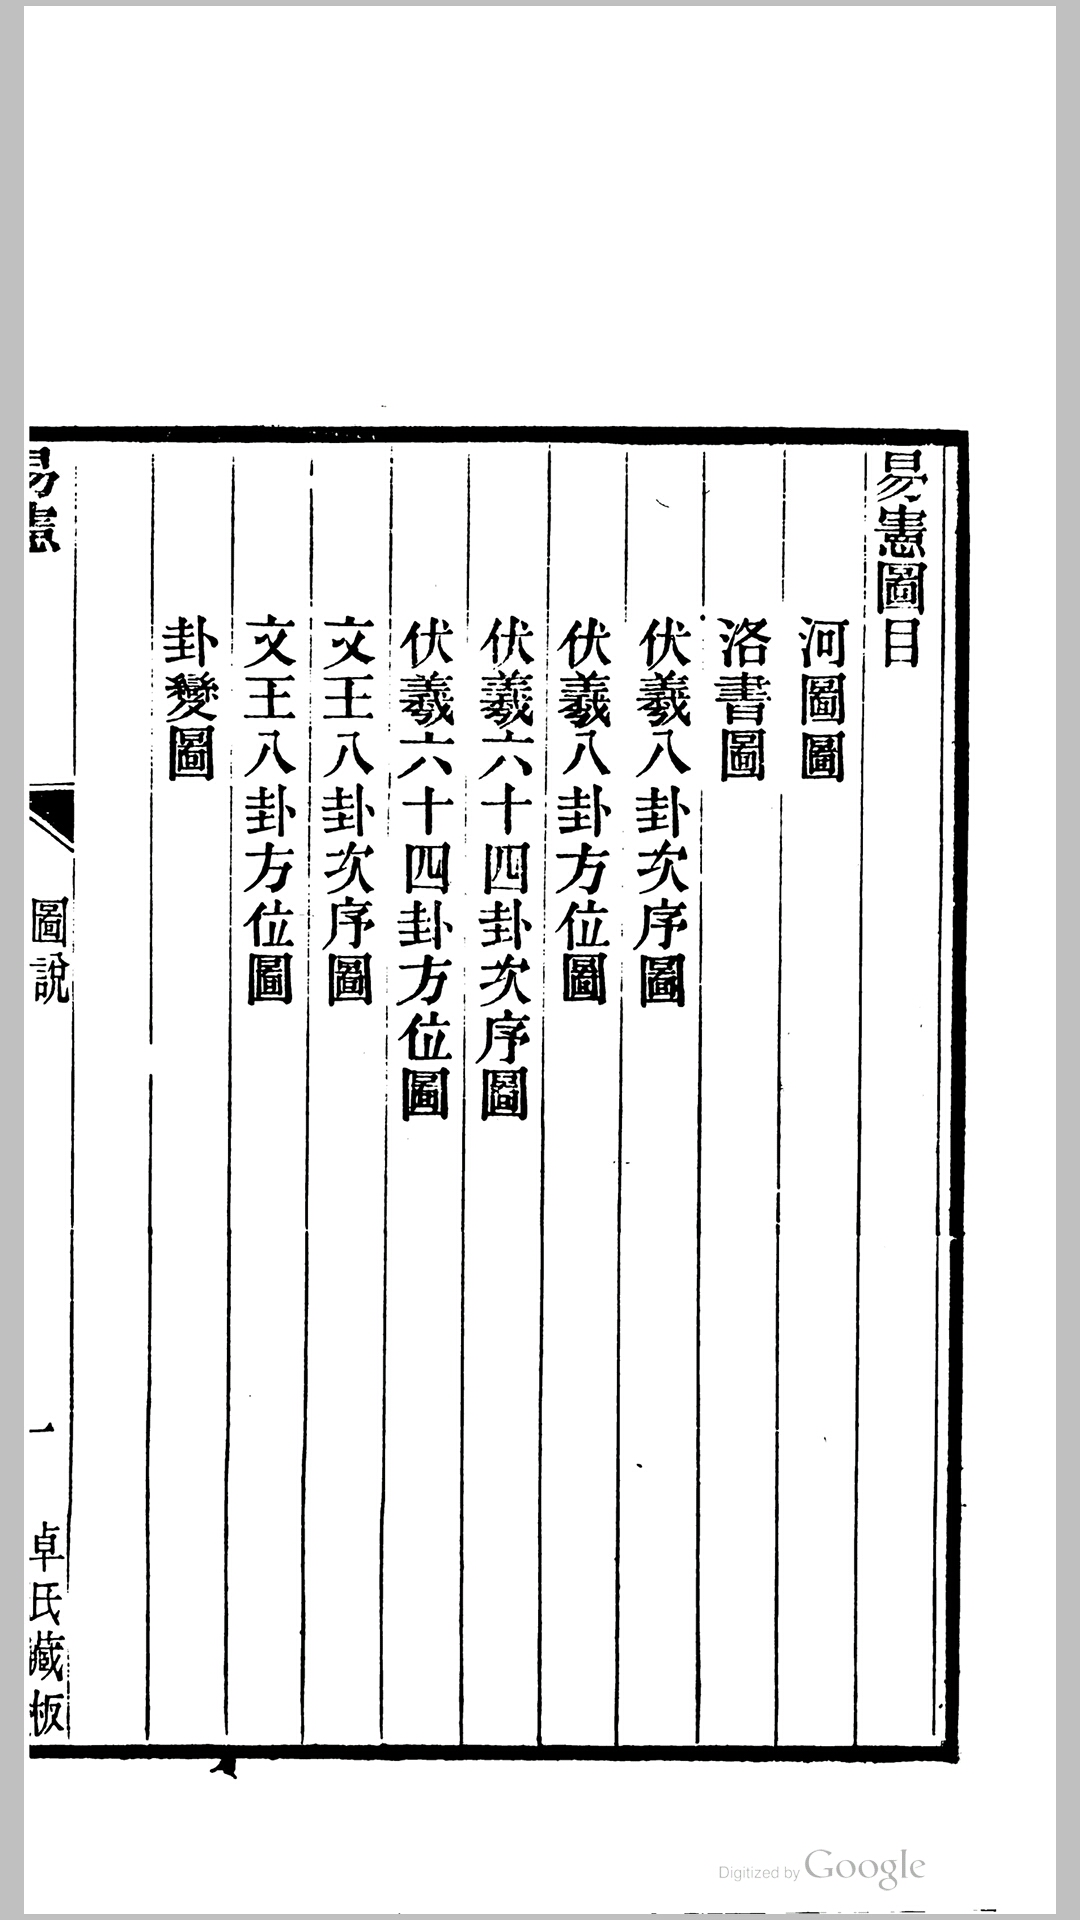 易憲圖目
河圖圖
洛書圖
伏羲八卦次序圖
伏羲八卦方位圖
伏羲六十四卦次序圖
伏羲六十四卦方位圖
文王八卦次序圖
文王八卦方位圖
卦變圖
易憲
圖說
一
卓氏藏板
Digitized by Google